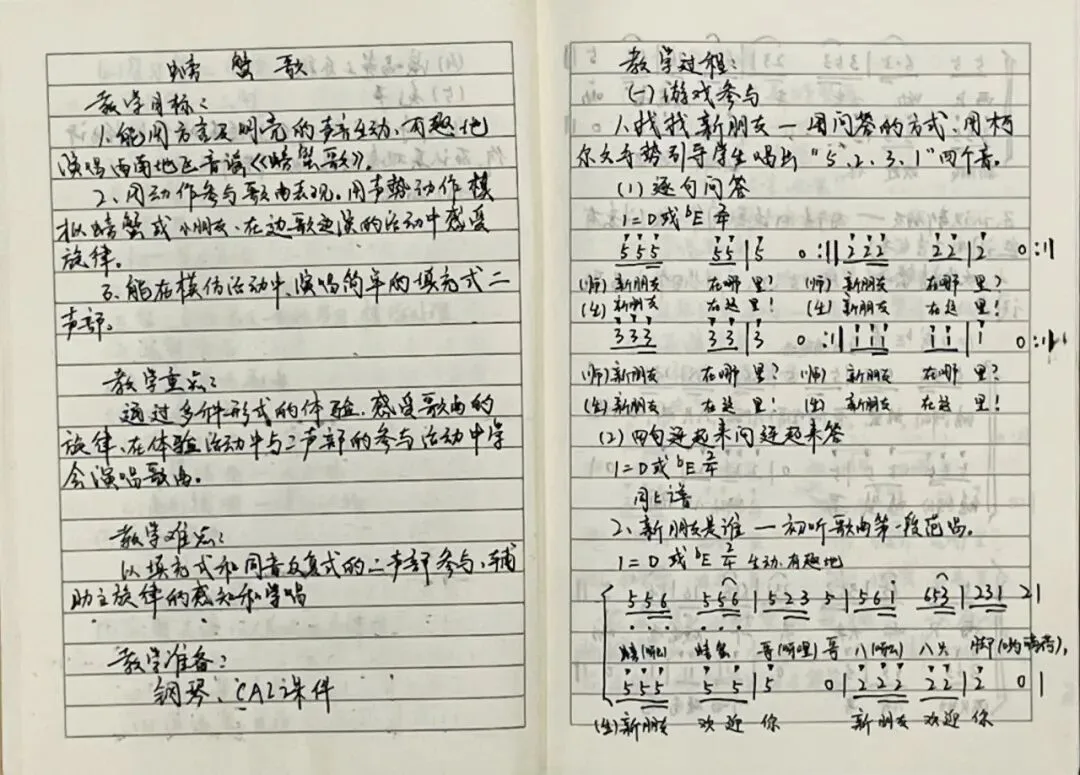 螃蟹歌
教学目标：
1、能用方言及明亮的声音生动、有趣地
演唱西南地区音谣《螃蟹歌》。
2、用动作参与歌曲表现。用声势动作模
拟螃蟹或小朋友、在边歌边演的活动中感受
旋律。
3、能在模仿活动中、演唱简单的填充式二
声部。
教学重点：
通过多种形式的体验、感受歌曲的
旋律、在体验活动中与二声部的参与活动中学
会演唱歌曲。
教学难点：
以填充式和同音反复式的二声部参与、辅
助主旋律的感知和学唱
教学准备：
钢琴、CAI课件
教学过程：
(一)游戏参与
1、找找新朋友—用问答的方式、用柯
尔文手势引导学生唱出"5、2、3、1"四个音。
(1)逐句问答
1=D或♭E 2/4
555 55|5 0:||222 22|2 0:||
(师)新朋友 在哪里？(师)新朋友 在哪里？
(生)新朋友 在这里！(生)新朋友 在这里！
333 33|3 0:||i i i i i|i 0:||
(师)新朋友 在哪里？(师)新朋友 在哪里？
(生)新朋友 在这里！(生)新朋友 在这里！
(2)四句连起来问连起来答
1=D或♭E 2/4
同上谱
2、新朋友是谁—初听歌曲第一段范唱。
1=D或♭E 2/4 生动、有趣地
556 556|523 5|56i 653|231 2|
螃(呀么)螃蟹 哥(呀哩)哥 八(呀么)八只 脚
555 55|5 0|222 22|2 0|
(生)新朋友 欢迎你 新朋友 欢迎你